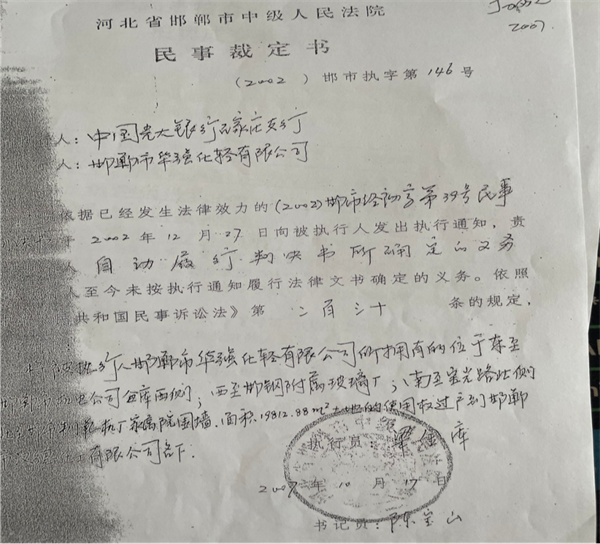 河北省邯郸市中级人民法院
2007
民事裁定书
（2002）邯市执字第146号
人：中国光大银行石家庄支行
人：邯郸市华强化轻有限公司
依据已经发生法律效力的（2002）邯市经初字第39号民事
2002年12月27日向被执行人发出执行通知，责
自动履行判决书所确定的义务
人至今未按执行通知履行法律文书确定的义务。依照
共和国民事诉讼法》第二百三十条的规定，
行人邯郸市华强化轻有限公司所拥有的位于东至
公司仓库西侧；西至邯钢附属玻璃厂；南至宝光路北侧
厂家属院围墙，面积19812.88m²土地的使用权过户到邯郸
有限公司名下.
执行员：库
2007年10月17日
书记员：陈宝山